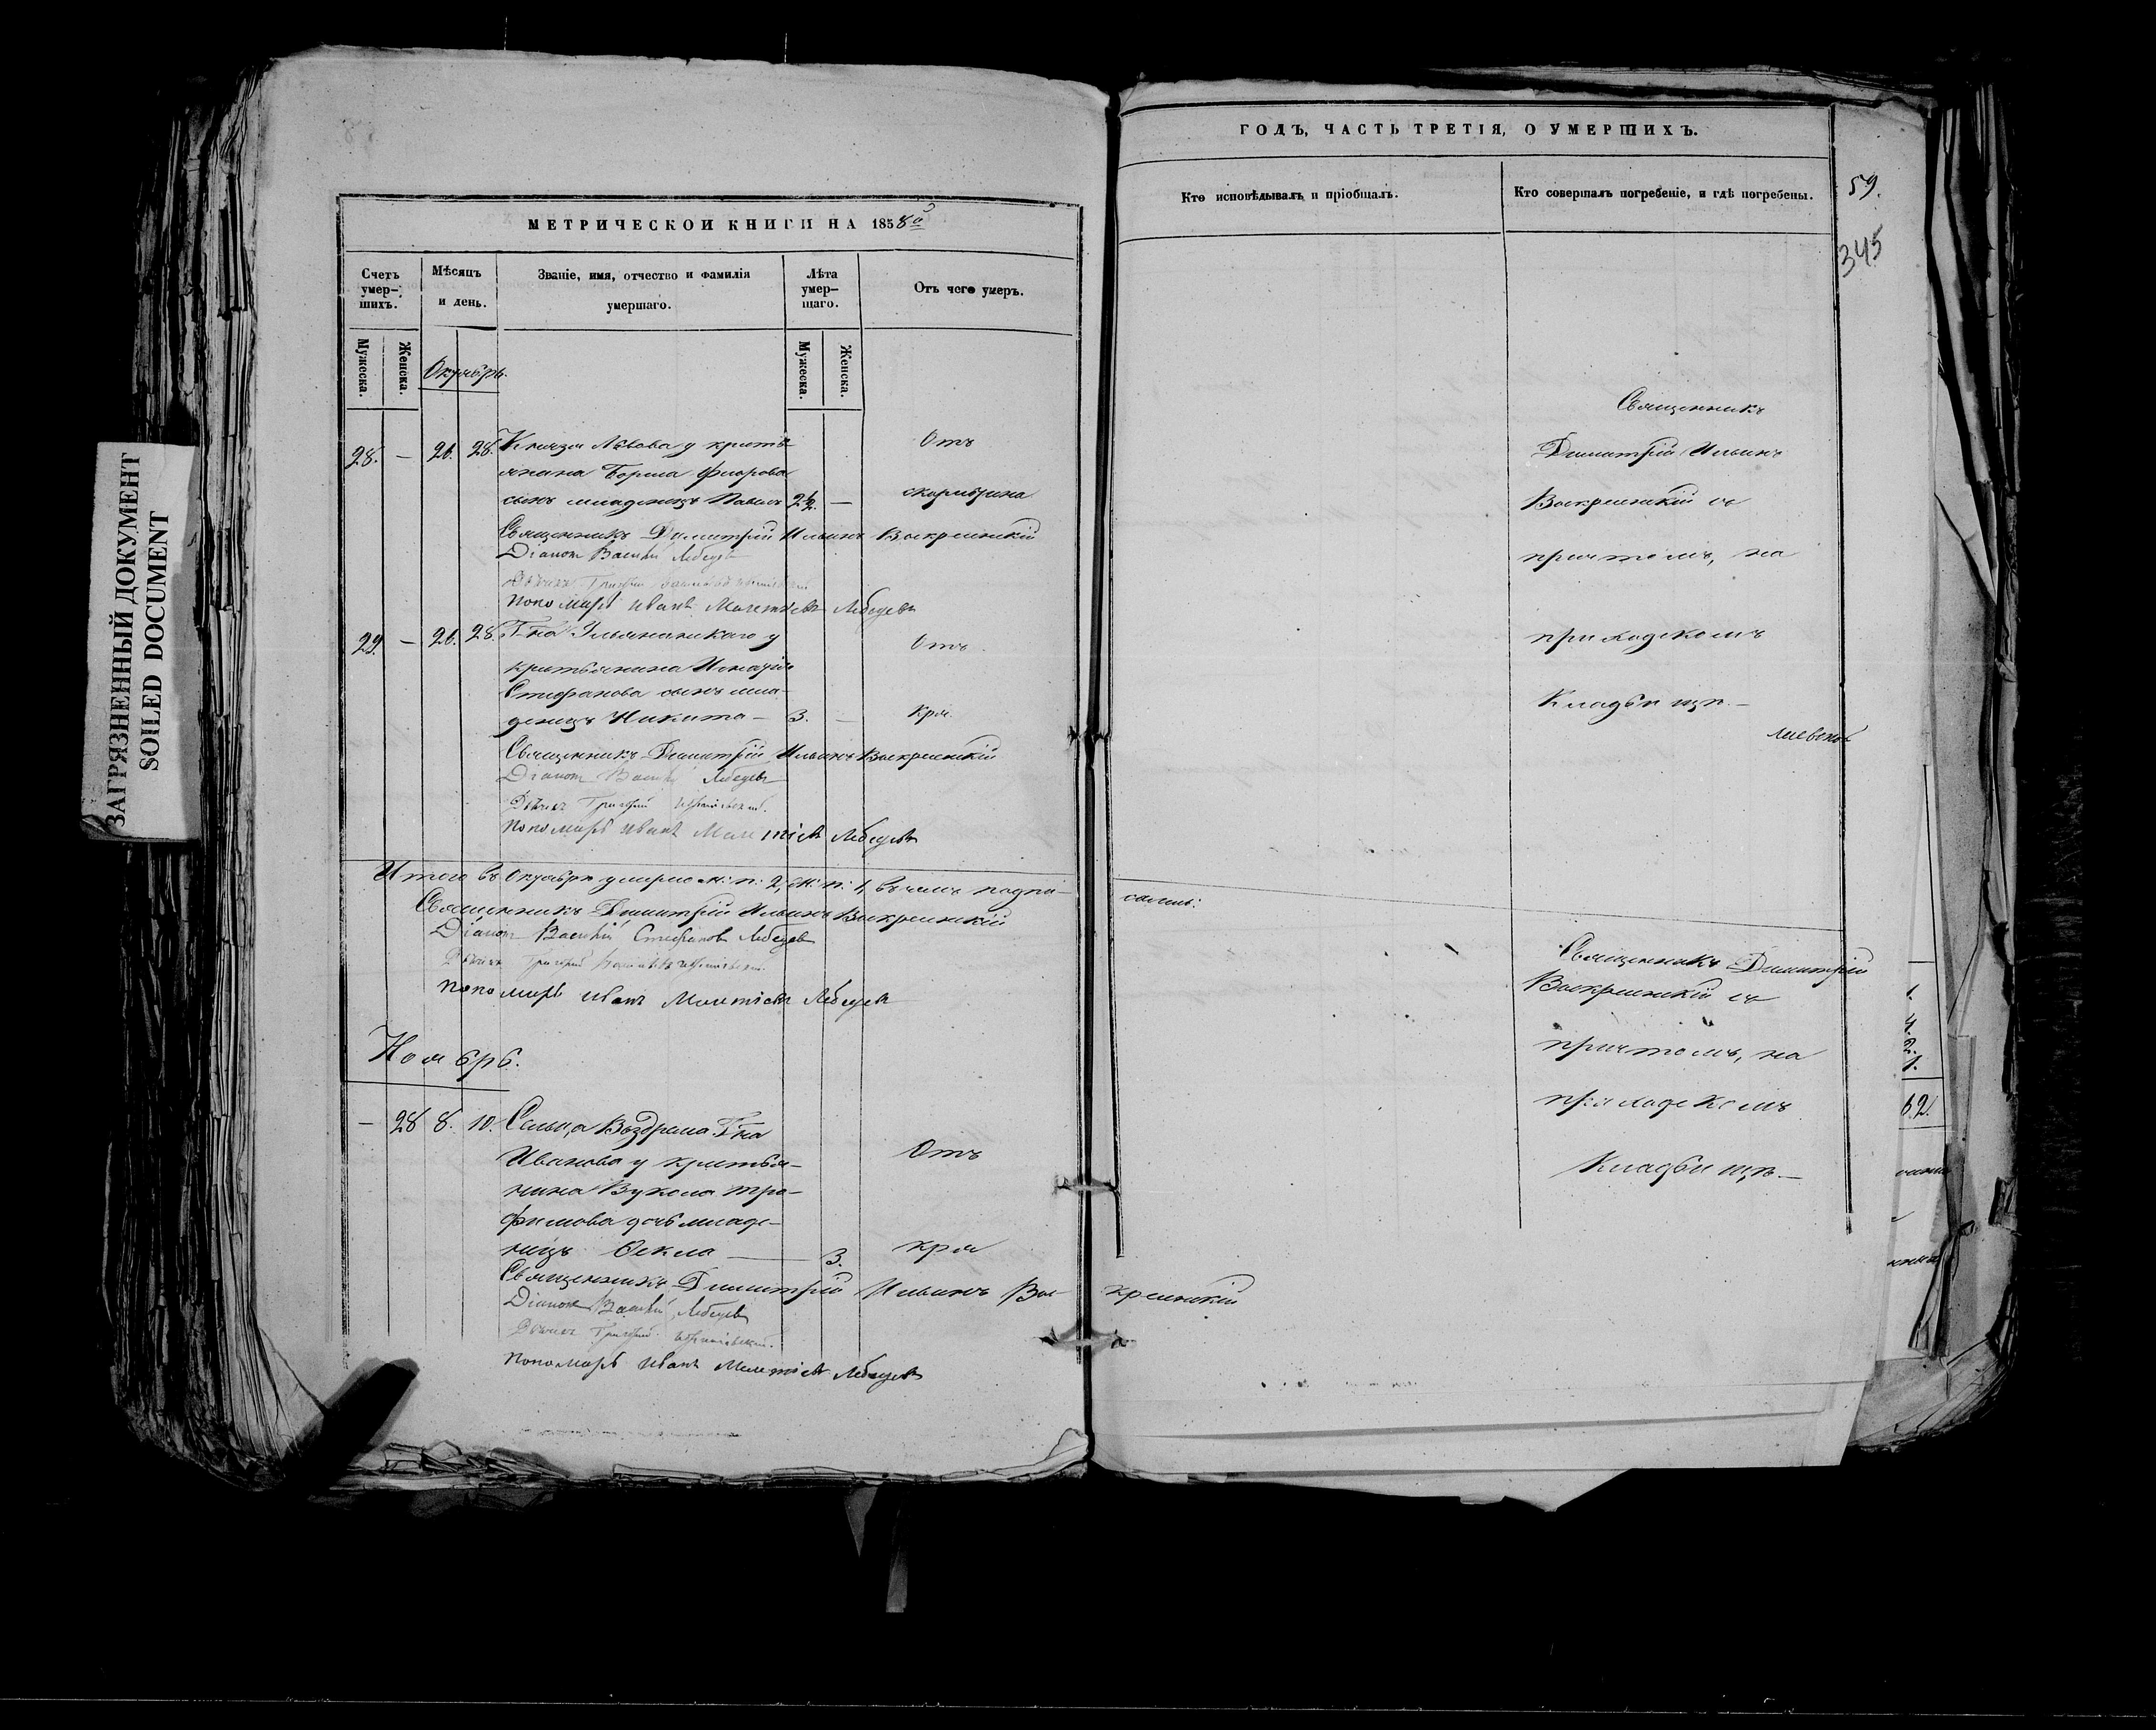 ЗАГРЯЗНЕННЫЙ ДОКУМЕНТ
SOILED DOCUMENT
МЕТРИЧЕСКОЙ КНИГИ НА 1858й
Счетъ умер-шихъ.
Мѣсяцъ и день.
Званіе, имя, отчество и фамилія умершаго.
Лѣта умер-шаго.
Отъ чего умеръ.
Мужеска.
Женска.
Мужеска.
Женска.
Октябрь.
28. — 26. 28. Князя Львова у кресть
янина Бориса Флорова
сынъ младенецъ Павелъ 2½. —
Отъ
скарлатина
Священникъ Димитрій Ильинъ Воскресенскій
Діаконъ Василій Лебедев
Дьячек Григорий
Пономарь Иванъ Мелетіевъ Лебедевъ
29. — 26. 28. Г-на Ульянинскаго у
крестьянина Игнатія
Стефанова сынъ мла-
денецъ Никита — 3. —
Отъ
Кри.
Священникъ Димитрій Ильинъ Воскресенскій
Діаконъ Василій Лебедевъ
Дьячек Григорий
Пономарь Иванъ Мелетіевъ Лебедевъ
Итого въ Октябрѣ умерло м: п: 2, ж: п: 1, въ чемъ подпи-
Священникъ Димитрій Ильинъ Воскресенскій
Діаконъ Василій Стефановъ Лебедевъ
Дьячек Григорий
Пономарь Иванъ Мелетіевъ Лебедевъ
Ноябрь.
— 28 8. 10. Сельца Г-на
Иванова у крестья-
нина Вукола Тро-
фимова дочь младе-
нецъ Ѳекла — 3.
Отъ
кри
Священникъ Димитрій Ильинъ Вос-
Діаконъ Василій Лебедевъ
Дьячек Григорий
Пономарь Иванъ Мелетіевъ Лебедевъ
ГОДЪ, ЧАСТЬ ТРЕТІЯ, О УМЕРШИХЪ.
Кто исповѣдывалъ и пріобщалъ.
Кто совершалъ погребеніе, и гдѣ погребены.
59.
345
Священникъ
Димитрій Ильинъ
Воскресенскій съ
причтомъ, на
приходскомъ
Кладбищѣ. —
салися:
Священникъ Димитрій
Воскресенскій съ
причтомъ, на
приходскомъ
Кладбищѣ. —
кресенскій
1.
4.
2.
1.
62.